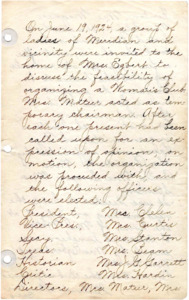 On June 19, 192-, a group of
ladies of Meridian and
vicinity were invited to the
home of Mrs. Egbert to
discuss the feasibility of
organizing a Woman's Club
Mrs. Matser acted as tem-
porary chairman. After
each one present had been
called upon for an ex-
pression of opinion, on
motion, the organization
was proceeded with and
the following officers
were elected.
President, Mrs.
Vice-Pres., Mrs. Curtis
Secy. Mrs. Stanton
Treas. Mrs.
Historian Mrs. Garrett
Critic Mrs. Hardin
Directors, Mrs. Matser, Mrs.